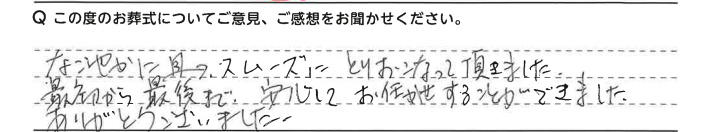 Q この度のお葬式についてご意見、ご感想をお聞かせください。
なごやかに且つ、スムーズに とりおこなって頂きました。
最初から最後まで、安心して お任せすることができました。
ありがとうございました。